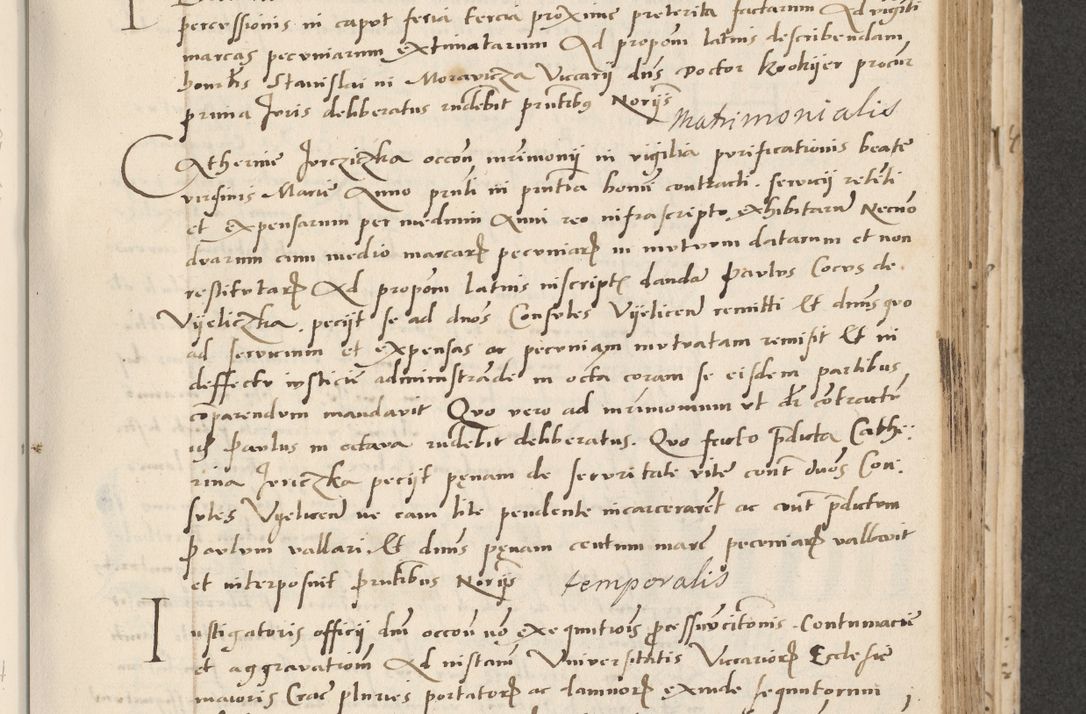 percessionis in caput feria tercia proxime preterita factarum Ad viginti
marcas pecuniarum extimatarum Ad propom latius describendam
honorbis Stanislai in Moravicza Vicarij dns Doctor Krokijer procur
prima Juris deliberatus rndebit pntibus Norijs
Matrimonialis
Catherine Jurczizka occon mrimonij in vigilia purificationis beate
virginis Marie Anno pnti in pntia bonum contracti. servicij relicti
et expensarum per medium Anni reo infrascripto exhibitarum Necno
duarum cum medio marcarum pecuniarum in mutuum datarum et non
restitutarum Ad propom latius inscriptum dandam Paulus Cocus de
Vijeliczka. pecijt se ad dnos Consules Vijelicen remitti Et dnms quo
ad servicium et expensas ac pecuniam mutuatam remisit Et in
deffectu iusticie administrande in octa coram se eisdem partibus
comparendum mandavit Quo vero ad mrimonium ut dr contractum
is Paulus in octava rndebit deliberatus. Quo facto pdicta Cathe:
rina Jurczka pecijt penam de securitate vite cont duos Con:
sules Vijelicen ne eam lite pendente incarcerarent ac cont pdictum
Paulum vallari. Et dnms penam centum marc pecuniarum vallavit
et interposuit pntibus Norijs
temporalis
Instigatoris officij dni occon no exequutiois processuum citonis. Contumacie
et aggravationum Ad instam Universitatis Vicariorum Ecclesie
maioris Crac plures portatorum ac damnorum exinde sequutorum